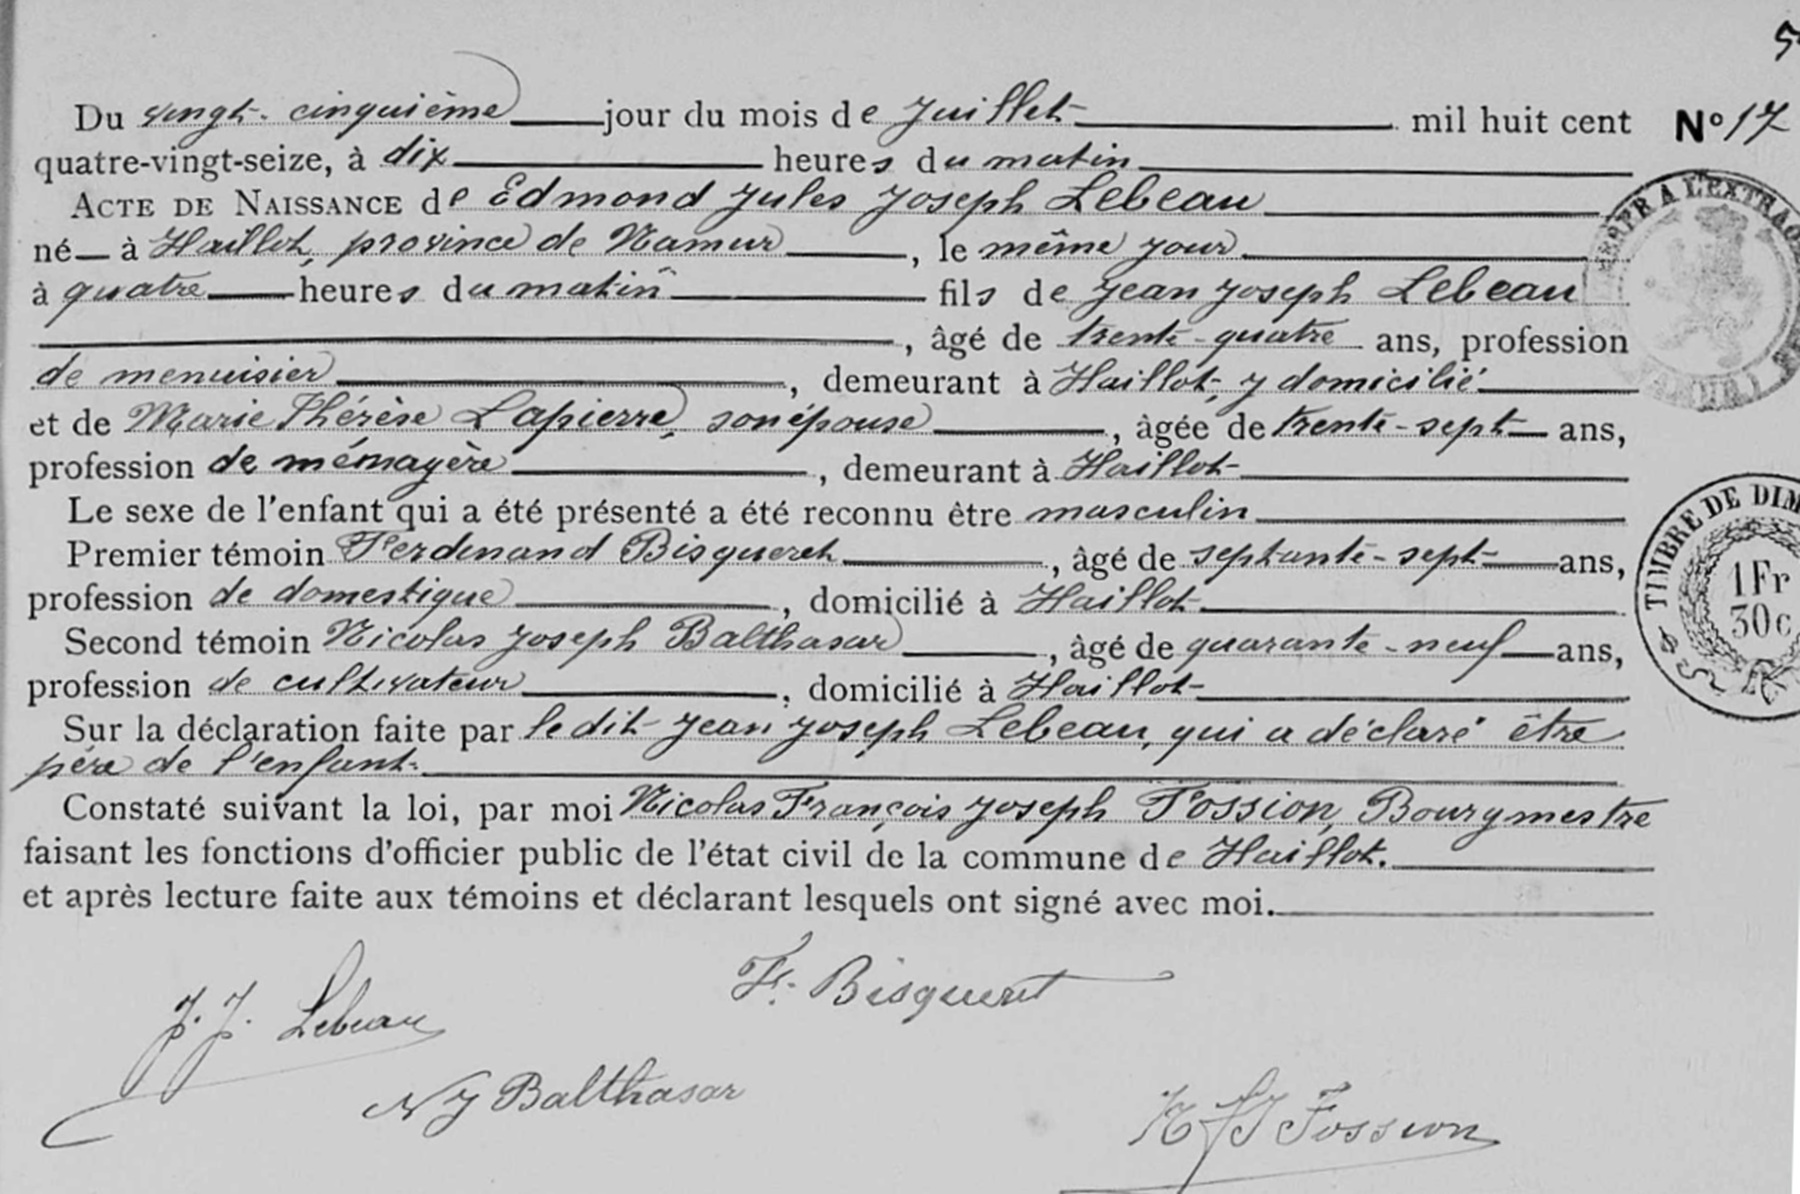 Du vingt-cinquième jour du mois de Juillet mil huit cent
quatre-vingt-seize, à dix heures du matin
ACTE DE NAISSANCE de Edmond Jules Joseph Lebeau
né à Haillot, province de Namur, le même jour
à quatre heures du matin fils de Jean Joseph Lebeau
, âgé de trente-quatre ans, profession
de menuisier, demeurant à Haillot, y domicilié
et de Marie Thérèse Lapierre, son épouse, âgée de trente-sept ans,
profession de ménagère, demeurant à Haillot
Le sexe de l'enfant qui a été présenté a été reconnu être masculin
Premier témoin Ferdinand Bisqueret, âgé de septante-sept ans,
profession de domestique, domicilié à Haillot
Second témoin Nicolas Joseph Balthasar, âgé de quarante-neuf ans,
profession de cultivateur, domicilié à Haillot
Sur la déclaration faite par le dit Jean Joseph Lebeau, qui a déclaré être
père de l'enfant.
Constaté suivant la loi, par moi Nicolas François Joseph Fossion, Bourgmestre
faisant les fonctions d'officier public de l'état civil de la commune de Haillot.
et après lecture faite aux témoins et déclarant lesquels ont signé avec moi.
F. Bisqueret
J. J. Lebeau
N J Balthasar
N F J Fossion
5
No 17
A L'EXTRAO
NAMUR
TIMBRE DE DIM
1 Fr
30c